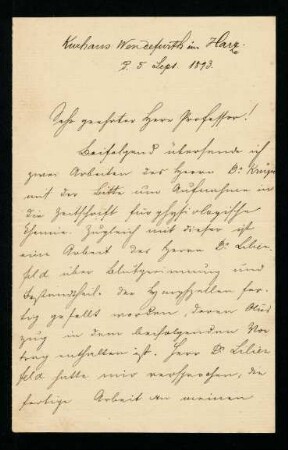 Kurhaus Wendefurth im Harz.
d. 5 Sept. 1893.
Sehr geehrter Herr Professor!
Beifolgend übersende ich
zwei Arbeiten des Herrn Dr Krüger
mit der Bitte um Aufnahme in
die Zeitschrift für physiologische
Chemie. Zugleich mit dieser ist
eine Arbeit des Herrn Dr Lilien-
feld über Blutgerinnung und
Bestandtheile der Lymphzellen fer-
tig gestellt worden, deren Aus
zug in dem beifolgenden Vor-
trag enthalten ist. Herr Dr Lilien
feld hatte mir versprochen, die
fertige Arbeit an meinen